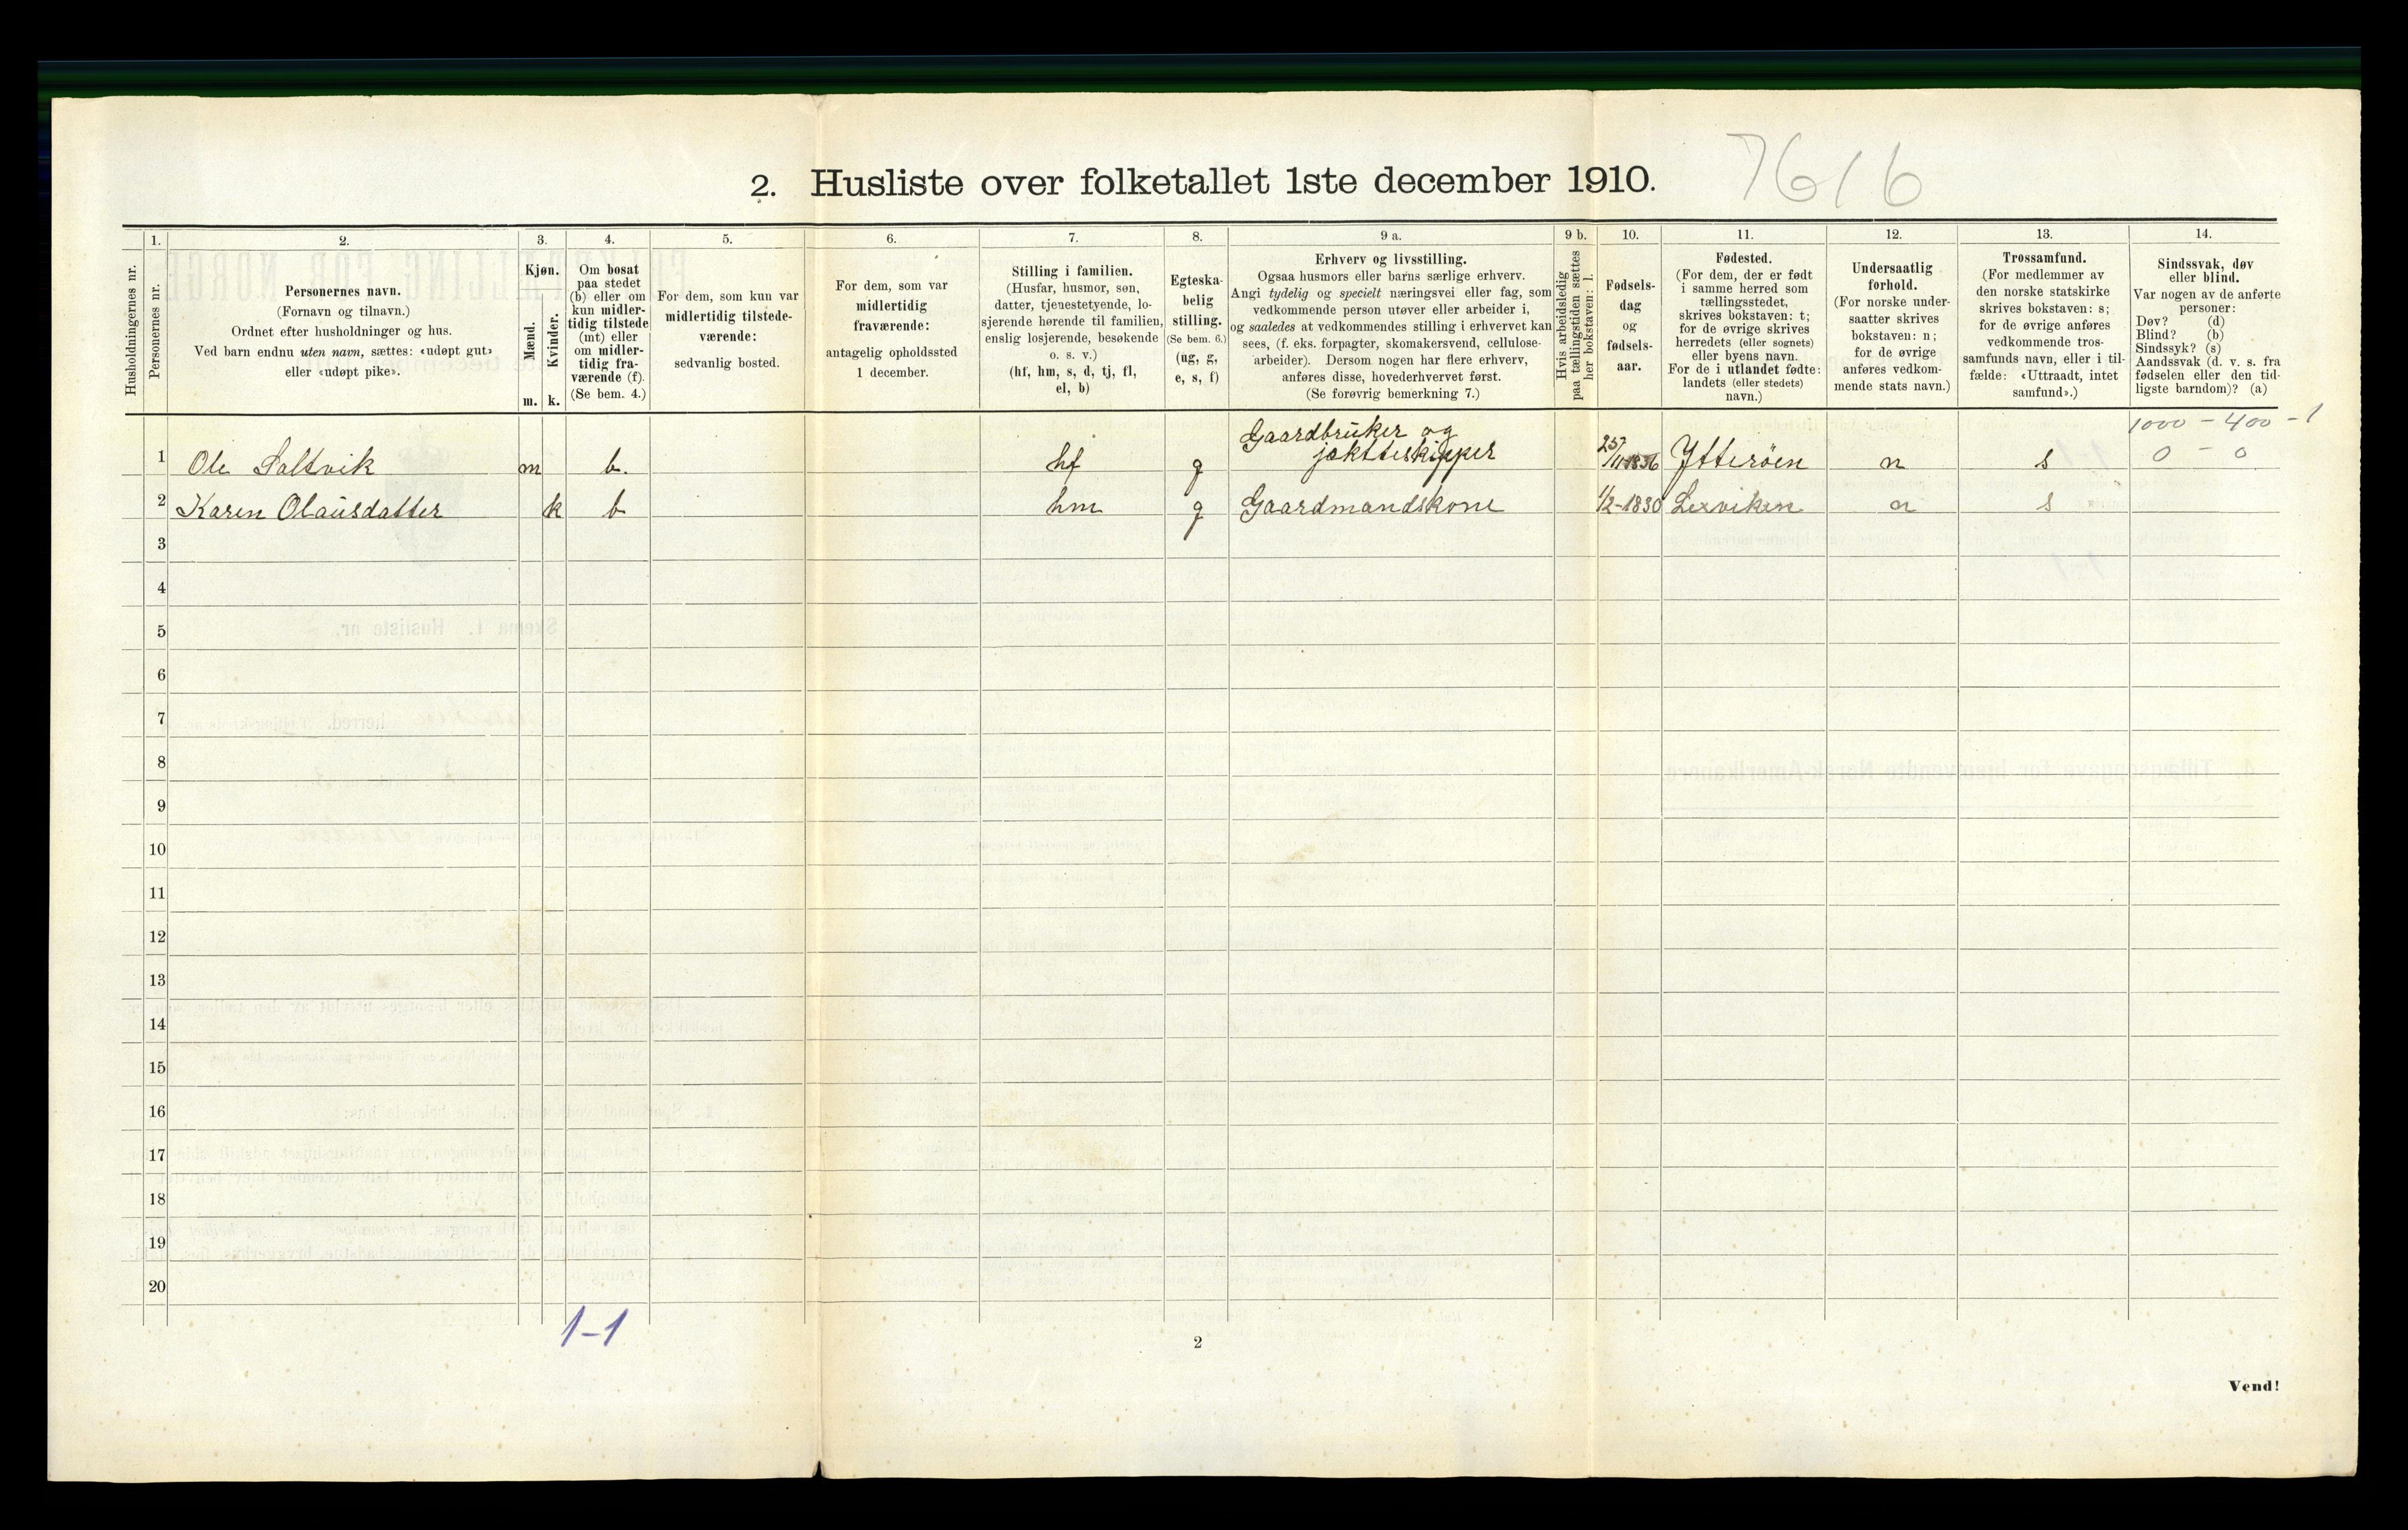 7616
2. Husliste over folketallet 1ste december 1910.
Husholdningernes nr.
1.
Personernes nr.
2.
Personernes navn.
(Fornavn og tilnavn.)
Ordnet efter husholdninger og hus.
Ved barn endnu uten navn, sættes: «udøpt gut»
eller «udøpt pike».
3.
Kjøn.
Mænd.
Kvinder.
m. k.
4.
Om bosat
paa stedet
(b) eller om
kun midler-
tidig tilstede
(mt) eller
om midler-
tidig fra-
værende (f).
(Se bem. 4.)
5.
For dem, som kun var
midlertidig tilstede-
værende:
sedvanlig bosted.
6.
For dem, som var
midlertidig
fraværende:
antagelig opholdssted
1 december.
7.
Stilling i familien.
(Husfar, husmor, søn,
datter, tjenestetyende, lo-
sjerende hørende til familien,
enslig losjerende, besøkende
o. s. v.)
(hf, hm, s, d, tj, fl,
el, b)
8.
Egteska-
belig
stilling.
(Se bem. 6.)
(ug, g,
e, s, f)
9 a.
Erhverv og livsstilling.
Ogsaa husmors eller barns særlige erhverv.
Angi tydelig og specielt næringsvei eller fag, som
vedkommende person utøver eller arbeider i,
og saaledes at vedkommendes stilling i erhvervet kan
sees, (f. eks. forpagter, skomakersvend, cellulose-
arbeider). Dersom nogen har flere erhverv,
anføres disse, hovederhvervet først.
(Se forøvrig bemerkning 7.)
9 b.
Hvis arbeidsledig
paa tællingstiden sættes
her bokstaven: l.
10.
Fødsels-
dag
og
fødsels-
aar.
11.
Fødested.
(For dem, der er født
i samme herred som
tællingsstedet,
skrives bokstaven: t;
for de øvrige skrives
herredets (eller sognets)
eller byens navn.
For de i utlandet fødte:
landets (eller stedets)
navn.)
12.
Undersaatlig
forhold.
(For norske under-
saatter skrives
bokstaven: n;
for de øvrige
anføres vedkom-
mende stats navn.)
13.
Trossamfund.
(For medlemmer av
den norske statskirke
skrives bokstaven: s;
for de øvrige anføres
vedkommende tros-
samfunds navn, eller i til-
fælde: «Uttraadt, intet
samfund».)
14.
Sindssvak, døv
eller blind.
Var nogen av de anførte
personer:
Døv? (d)
Blind? (b)
Sindssyk? (s)
Aandssvak (d. v. s. fra
fødselen eller den tid-
ligste barndom)? (a)
1000 - 400 - 1
1 Ole Saltvik m b. hf g Gaardbruker og jaktteskipper 25/11-1836 Ytterøen n s 0 - 0
2 Karen Olausdatter k b hm g Gaardmandskone 1/2-1830 Lexviken n s
3
4
5
6
7
8
9
10
11
12
13
14
15
16
17
18
19
20
1-1
2
Vend!